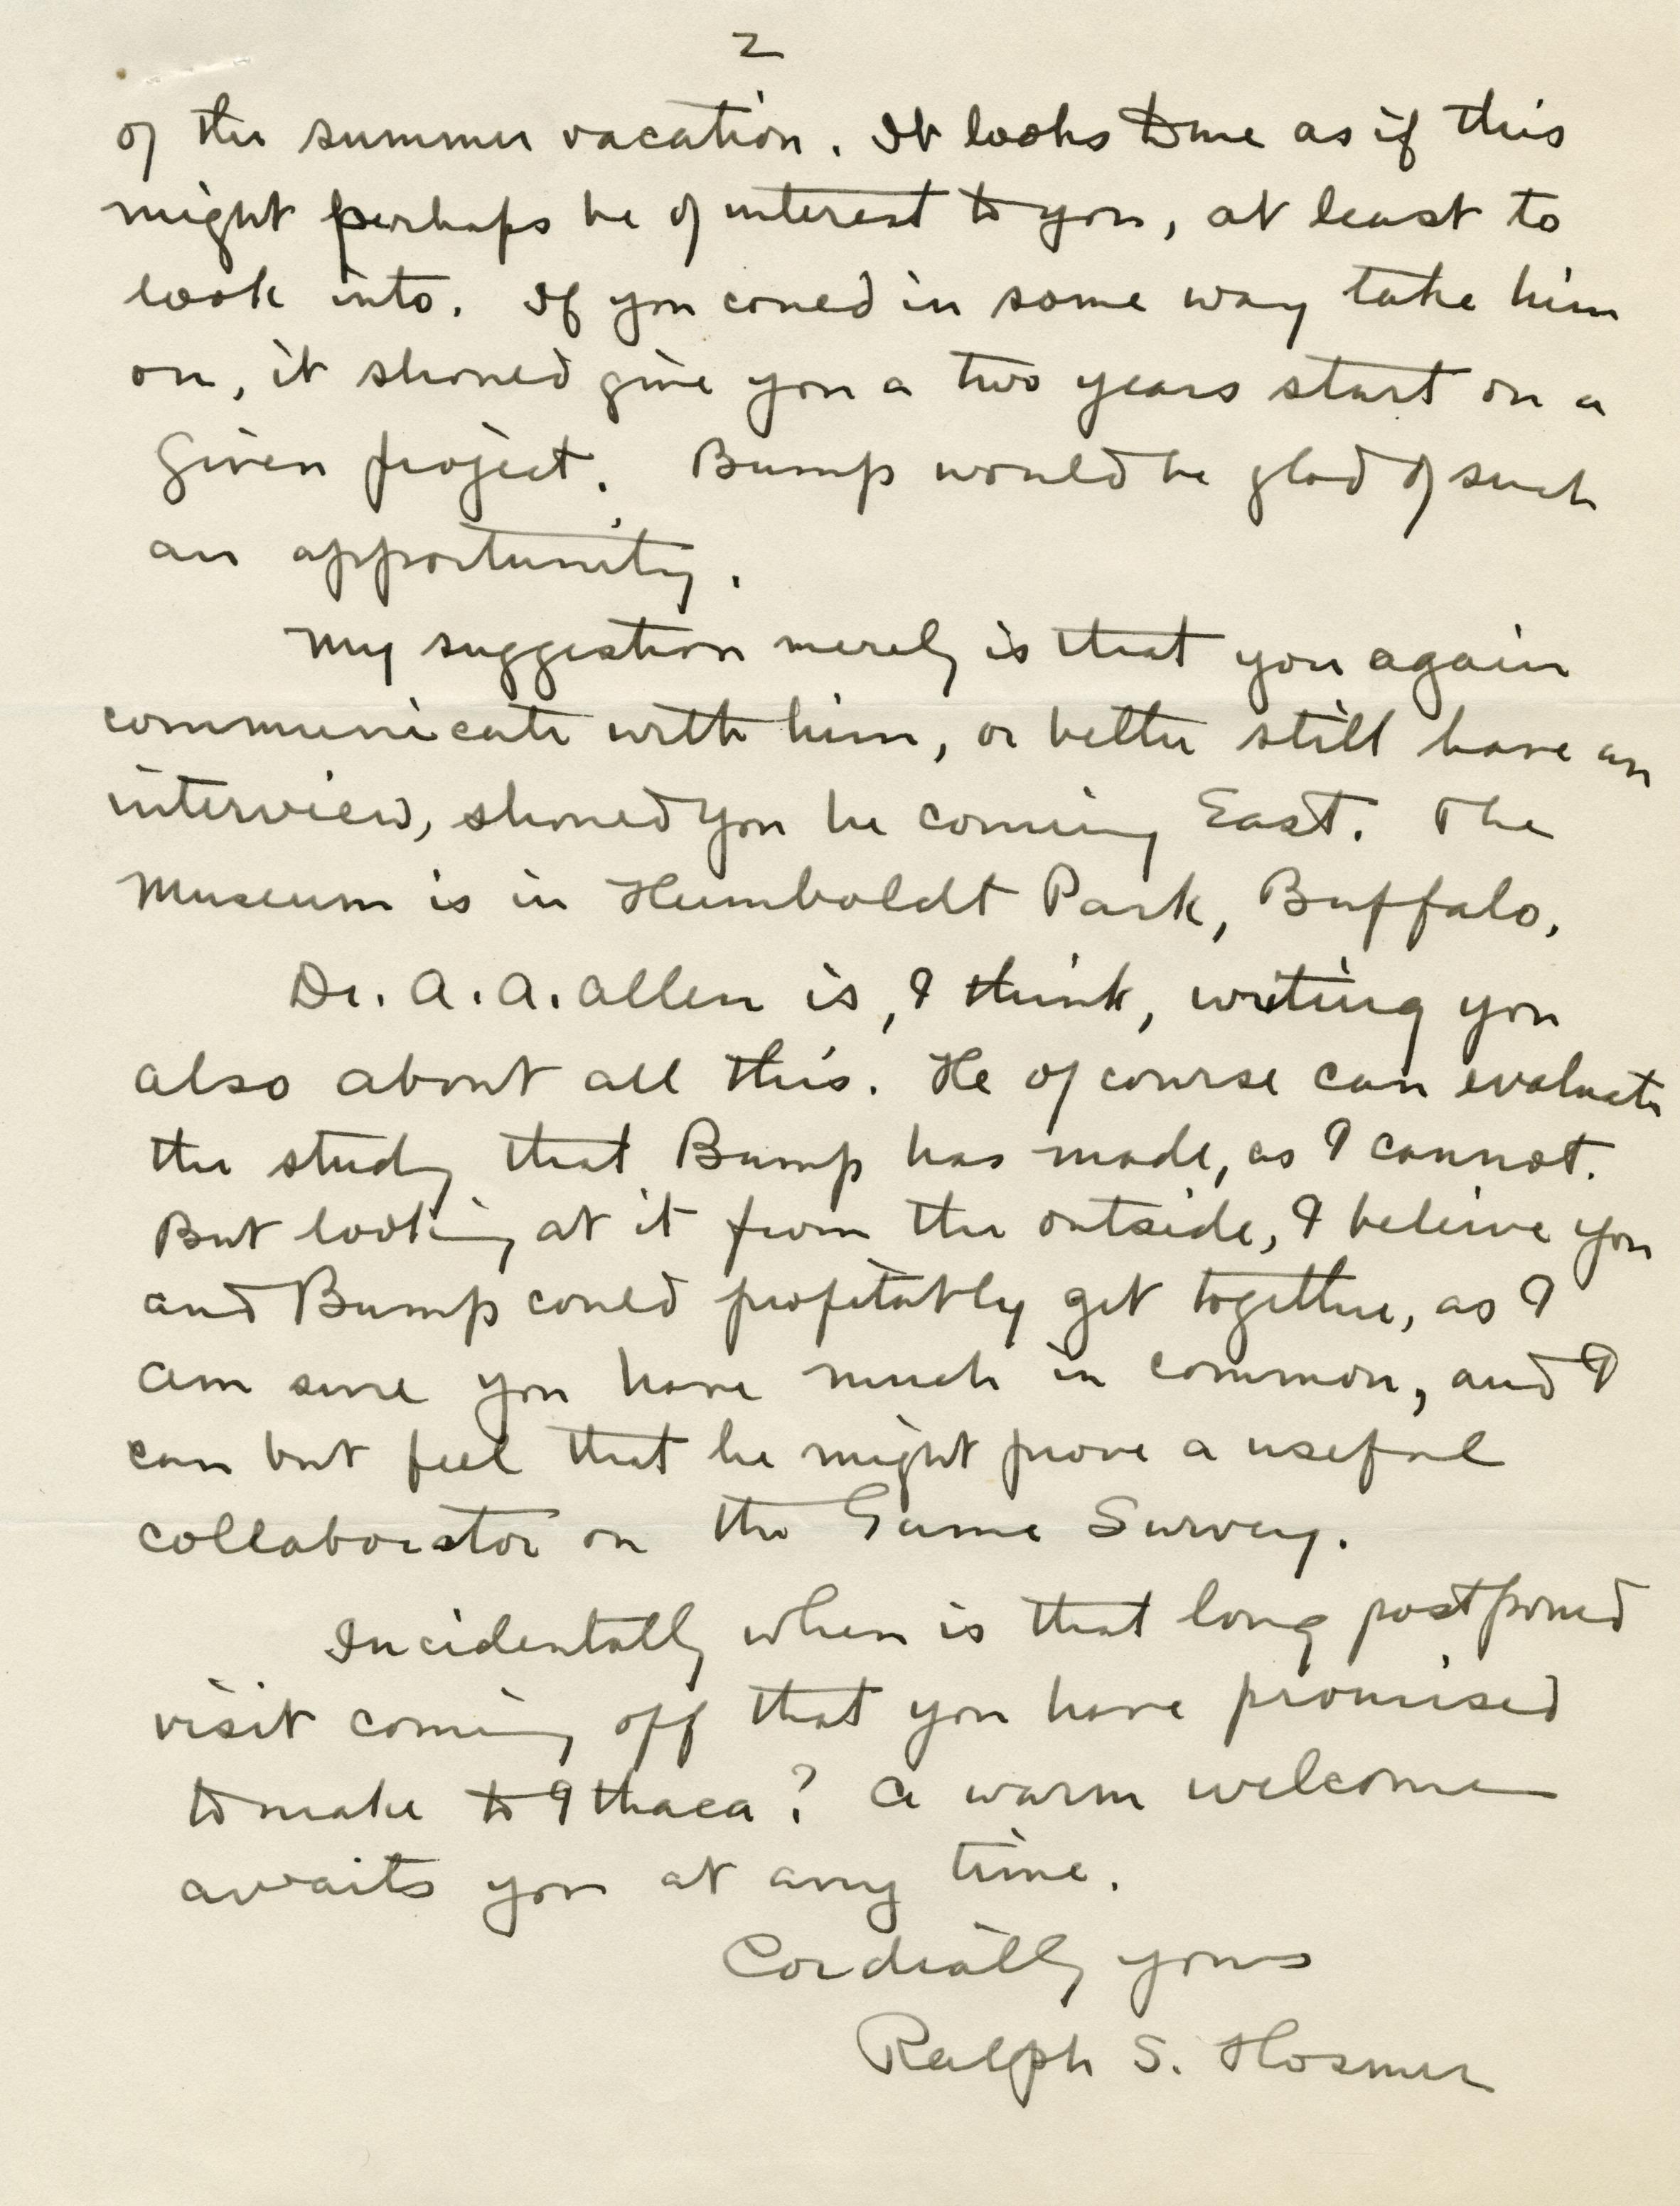 2
of the summer vacation. It looks to me as if this
might perhaps be of interest to you, at least to
look into. If you could in some way take him
on, it should give you a two years start on a
given project. Bump would be glad of such
an opportunity.
My suggestion merely is that you again
communicate with him, or better still have an
interview, should you be coming East. The
Museum is in Humboldt Park, Buffalo.
Dr. A. A. Allen is, I think, writing you
also about all this. He of course can evaluate
the study that Bump has made, as I cannot.
But looking at it from the outside, I believe you
and Bump could profitably get together, as I
am sure you have much in common, and I
can but feel that he might prove a useful
collaborator on the Game Survey.
Incidentally when is that long postponed
visit coming off that you have promised
to make to Ithaca? A warm welcome
awaits you at any time.
Cordially yours
Ralph S. Hosmer